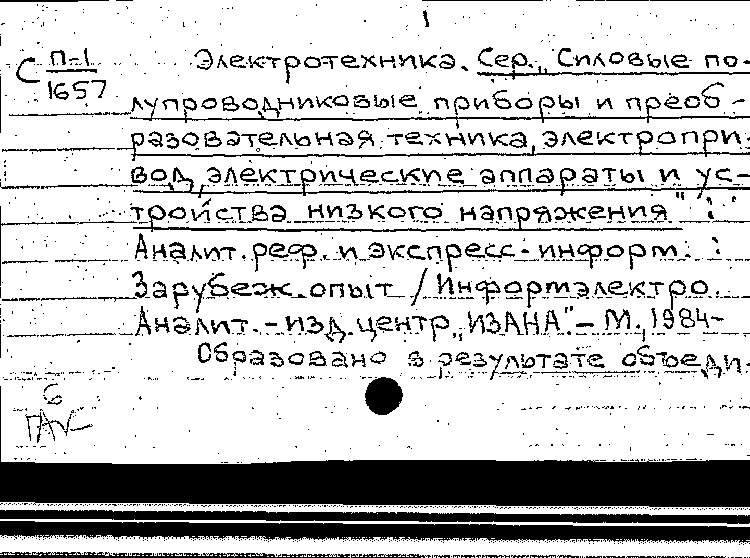 1
С П-1
1657
Электротехника. Сер. „Силовые по-
лупроводниковые приборы и преоб-
разовательная техника, электропри-
вод, электрические аппараты и ус-
тройства низкого напряжения" :
Аналит. реф. и экспресс-информ. :
Зарубеж. опыт / Информэлектро.
Аналит.-изд. центр „ИЗАНА". – М., 1984-
Образовано в результате объеди-
6